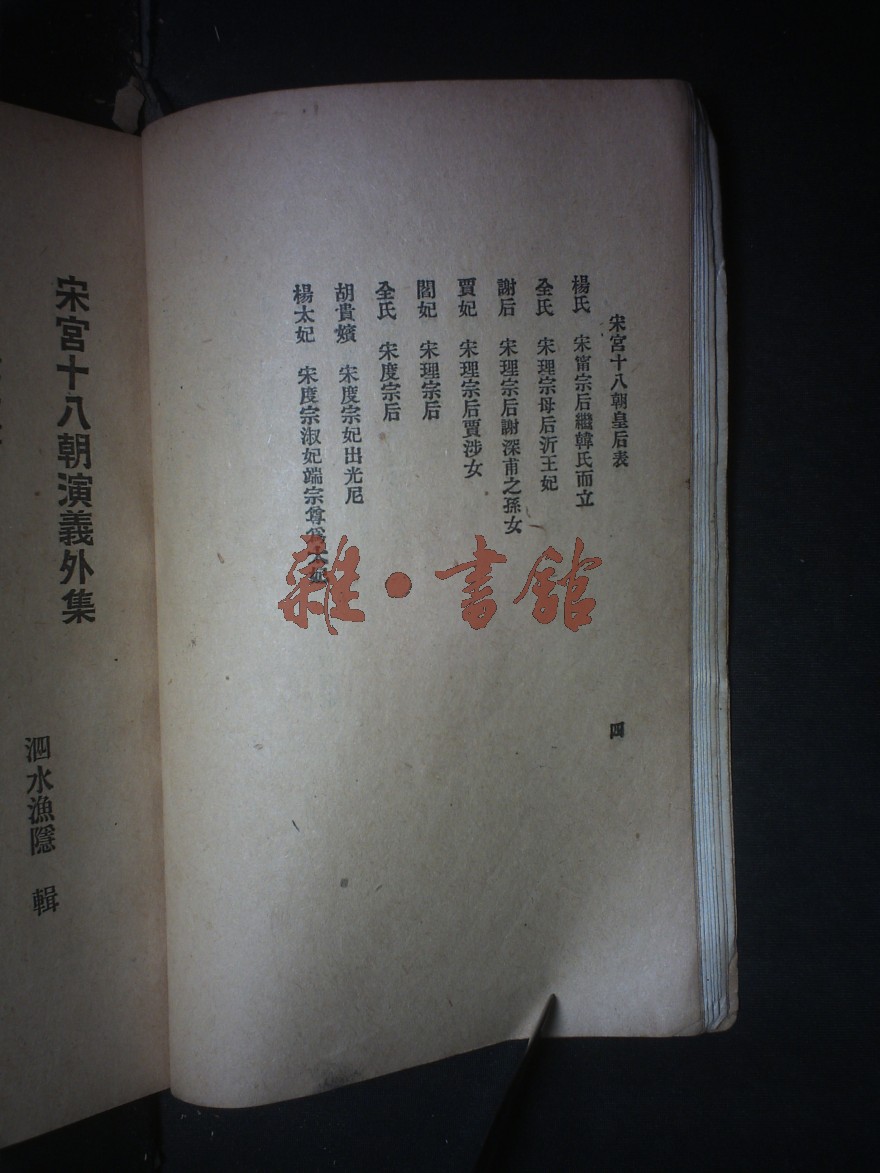 宋宮十八朝皇后表
四
楊氏 宋甯宗后繼韓氏而立
全氏 宋理宗母后沂王妃
謝后 宋理宗后謝深甫之孫女
賈妃 宋理宗后賈涉女
閻妃 宋理宗后
全氏 宋度宗后
胡貴嬪 宋度宗妃出光尼
楊太妃 宋度宗淑妃端宗尊爲太妃
雜·書館
宋宮十八朝演義外集
泗水漁隱 輯